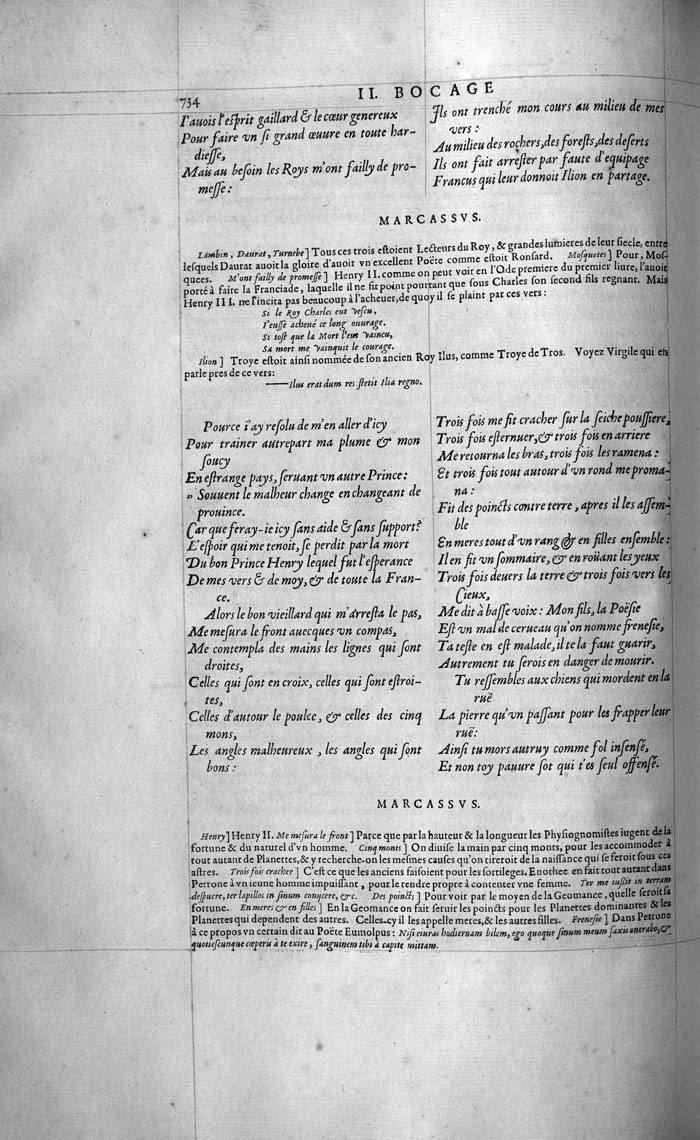 734
II. BOCAGE
I'auois l'esprit gaillard & le cœur genereux
Pour faire vn si grand œuure en toute har-
diesse,
Mais au besoin les Roys m'ont failly de pro-
messe:
Ils ont trenché mon cours au milieu de mes
vers:
Au milieu des rochers, des forests, des deserts
Ils ont fait arrester par faute d'equipage
Francus qui leur donnoit Ilion en partage.
MARCASSVS.
Lambin, Daurat, Turnebe] Tous ces trois estoient Lecteurs du Roy, & grandes lumieres de leur siecle, entre
lesquels Daurat auoit la gloire d'auoit vn excellent Poëte comme estoit Ronsard. Mosquetes] Pour, Mos-
quees. M'ont failly de promesse] Henry II. comme on peut voir en l'Ode premiere du premier liure, l'auoit
porté à faire la Franciade, laquelle il ne fit point pourtant que sous Charles son second fils regnant. Mais
Henry III. ne l'incita pas beaucoup à l'acheuer, de quoy il se plaint par ces vers:
Si le Roy Charles eut vescu,
I'eusse acheué ce long ouurage.
Si tost que la Mort l'eut vaincu,
Sa mort me vainquit le courage.
Ilion] Troye estoit ainsi nommée de son ancien Roy Ilus, comme Troye de Tros. Voyez Virgile qui en
parle pres de ce vers:
——Ilus erat dum res stetit Ilia regno.
Pource i'ay resolu de m'en aller d'icy
Pour trainer autrepart ma plume & mon
soucy
En estrange pays, seruant vn autre Prince:
„ Souuent le malheur change en changeant de
prouince.
Car que feray-ie icy sans aide & sans support?
L'espoir qui me tenoit, se perdit par la mort
Du bon Prince Henry lequel fut l'esperance
De mes vers & de moy, & de toute la Fran-
ce.
Alors le bon vieillard qui m'arresta le pas,
Me mesura le front auecques vn compas,
Me contempla des mains les lignes qui sont
droites,
Celles qui sont en croix, celles qui sont estroi-
tes,
Celles d'autour le poulce, & celles des cinq
mons,
Les angles malheureux, les angles qui sont
bons:
Trois fois me fit cracher sur la seiche poussiere,
Trois fois esternuer, & trois fois en arriere
Me retourna les bras, trois fois les ramena:
Et trois fois tout autour d'vn rond me prome-
na:
Fit des poincts contre terre, apres il les assem-
ble
En meres tout d'vn rang & en filles ensemble:
Il en fit vn sommaire, & en roüant les yeux
Trois fois deuers la terre & trois fois vers les
Cieux,
Me dit à basse voix: Mon fils, la Poësie
Est vn mal de cerueau qu'on nomme frenesie,
Ta teste en est malade, il te la faut guarir,
Autrement tu serois en danger de mourir.
Tu ressembles aux chiens qui mordent en la
ruë
La pierre qu'vn passant pour les frapper leur
ruë:
Ainsi tu mors autruy comme fol insensé,
Et non toy pauure sot qui t'es seul offensé.
MARCASSVS.
Henry] Henry II. Me mesura le front] Parce que par la hauteur & la longueur les Physiognomistes iugent de la
fortune & du naturel d'vn homme. Cinq monts] On diuise la main par cinq monts, pour les accommoder à
tout autant de Planettes, & y recherche-on les mesmes causes qu'on tireroit de la naissance qui se feroit sous ces
astres. Trois fois cracher] C'est ce que les anciens faisoient pour les sortileges. Enothee en fait tout autant dans
Petrone à vn ieune homme impuissant, pour le rendre propre à contenter vne femme. Ter me iussit in terram
despuere, ter lapillos in sinum conijcere, &c. Des poincts] Pour voir par le moyen de la Geomance, quelle seroit sa
fortune. En meres & en filles] En la Geomance on fait seruir les poincts pour les Planettes dominantes & les
Planettes qui dependent des autres. Celles-cy il les appelle meres, & les autres filles. Frenesie] Dans Petrone
à ce propos vn certain dit au Poëte Eumolpus: Nisi eiuras hodiernam bilem, ego quoque sinum meum saxis onerabo, &
quotiescunque cœperis à te exire, sanguinem tibi à capite mittam.